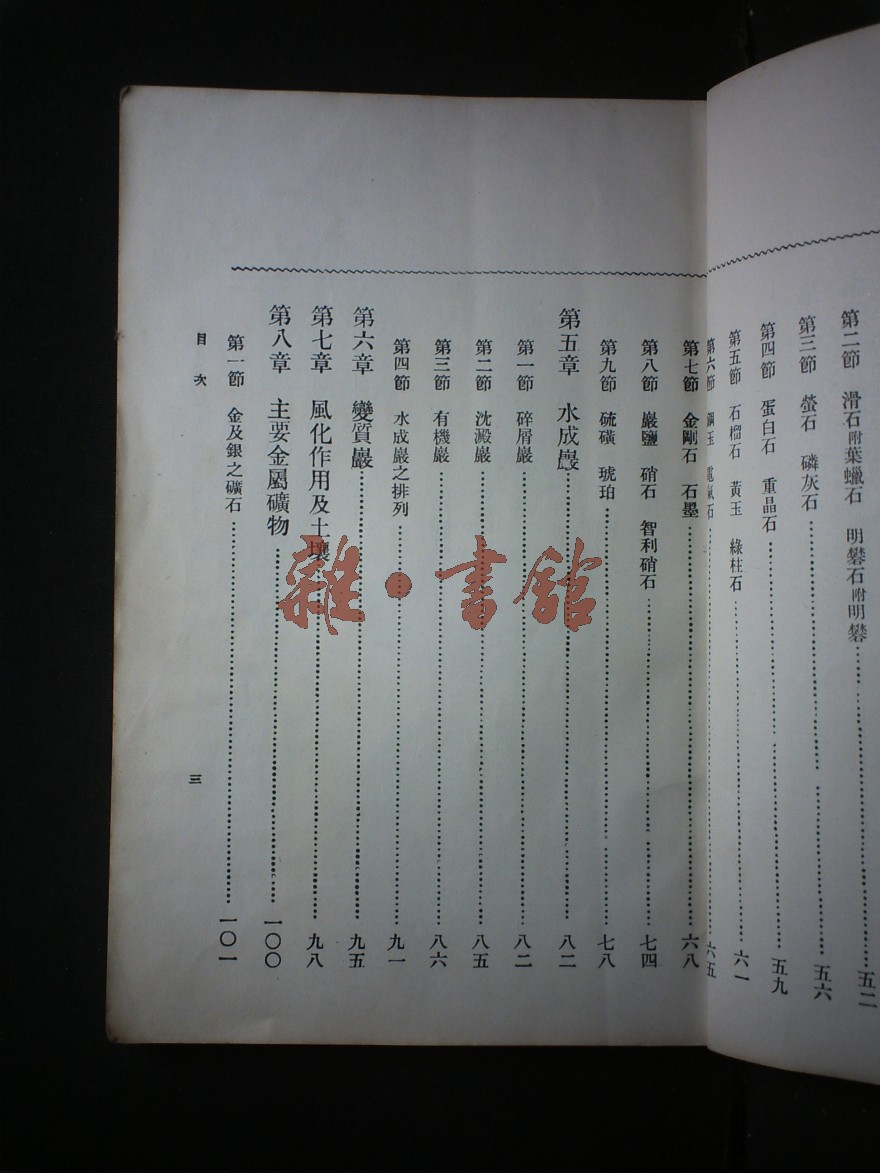 第二節 滑石附葉蠟石 明礬石附明礬 五二
第三節 螢石 磷灰石 五六
第四節 蛋白石 重晶石 五九
第五節 石榴石 黃玉 綠柱石 六一
第六節 鋼玉 電氣石 六五
第七節 金剛石 石墨 六八
第八節 巖鹽 硝石 智利硝石 七四
第九節 硫磺 琥珀 七八
第五章 水成巖 八二
第一節 碎屑巖 八二
第二節 沈澱巖 八五
第三節 有機巖 八六
第四節 水成巖之排列 九一
第六章 變質巖 九五
第七章 風化作用及土壤 九八
第八章 主要金屬礦物 一〇〇
第一節 金及銀之礦石 一〇一
目次
三
雜·書館